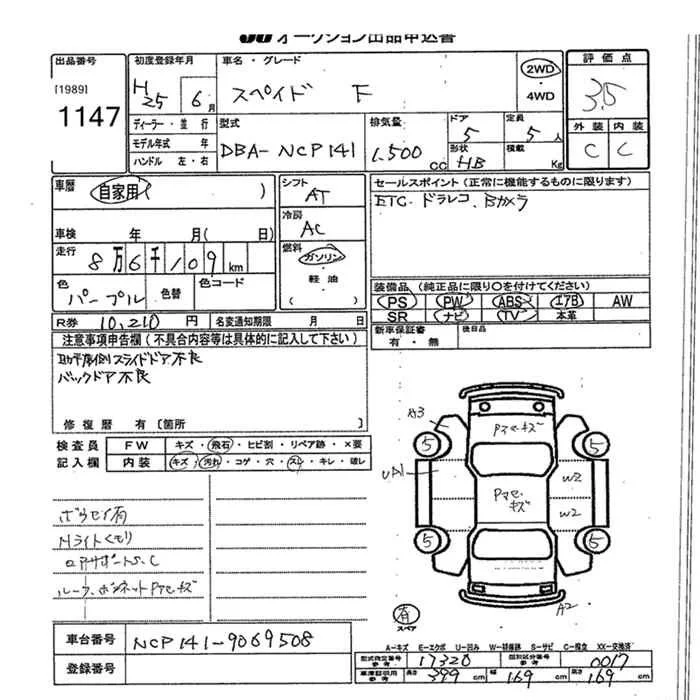 JU オークション出品申込書
出品番号
[1989]
1147
初度登録年月
H25 6月
車名・グレード
スペイド F
2WD
・
4WD
評価点
3.5
外装 内装
C C
ディーラー・並行
モデル年式 年
ハンドル 左・右
型式
DBA-NCP141
排気量
1.500cc
ドア
5
定員
5人
形状
HB
積載
Kg
車歴
自家用( )
車検 年 月( 日)
走行
8万6千109km
色
パープル
色替
色コード
シフト
AT
冷房
AC
燃料
ガソリン
・
軽油
( )
セールスポイント(正常に機能するものに限ります)
ETC.ドラレコ、Bカメラ
装備品(純正品に限り○を付けてください)
PS PW ABS エアB AW
SR ナビ TV 本革
新車保証書
有・無
後日品
R券 10,210円
名変通知期限 月 日
注意事項申告欄(不具合内容等は具体的に記入して下さい)
助手席側スライドドア不良
バックドア不良
修復歴 有〔箇所 〕
検査員
記入欄
FW キズ・飛石・ヒビ割・リペア跡・×要
内装 キズ・汚れ・コゲ・穴・スレ・キレ・破レ
ボウセイ有
Hライトくもり
コアサポートS.C
ルーフ、ボンネットPアセ・キズ
A3
Pアセ・キズ
5
5
UA1
W2
Pアセ・キズ
W2
5
5
有
スペア
A2
車台番号 NCP141-9069508
登録番号
A-キズ E-エクボ U-凹み W-補修跡 S-サビ C-腐立 XX-交換済
型式指定番号
参考
17320
類別区分番号
参考
0017
車庫証明用
参考
長さ 399cm 幅 169cm 高さ 169cm